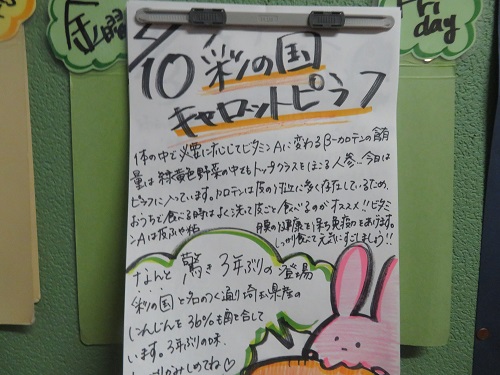 金曜
Fri
day
5/10 彩の国
キャロットピラフ
体の中で必要に応じてビタミンAに変わるβ-カロテンの含有
量は緑黄色野菜の中でもトップクラスをほこる人参。今日は
ピラフに入っています。カロテンは皮の付近に多く存在しているため、
おうちで食べる時はよく洗って皮ごと食べるのがオススメ!!ビタミ
ンAは皮ふや粘膜の健康を保ち免疫力をあげます。
しっかり食べて元気にすごしましょう!!
なんと驚き3年ぶりの登場
彩の国と名のつく通り埼玉県産の
にんじんを36%も配合して
います。3年ぶりの味
みしめてね♡